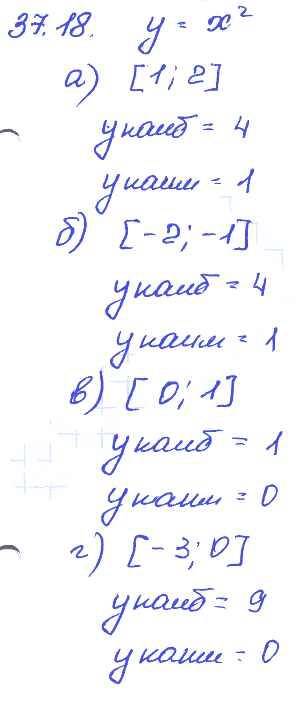 37.18. y = x²
а) [1; 2]
yнаиб = 4
yнаим = 1
б) [-2; -1]
yнаиб = 4
yнаим = 1
в) [0; 1]
yнаиб = 1
yнаим = 0
г) [-3; 0]
yнаиб = 9
yнаим = 0